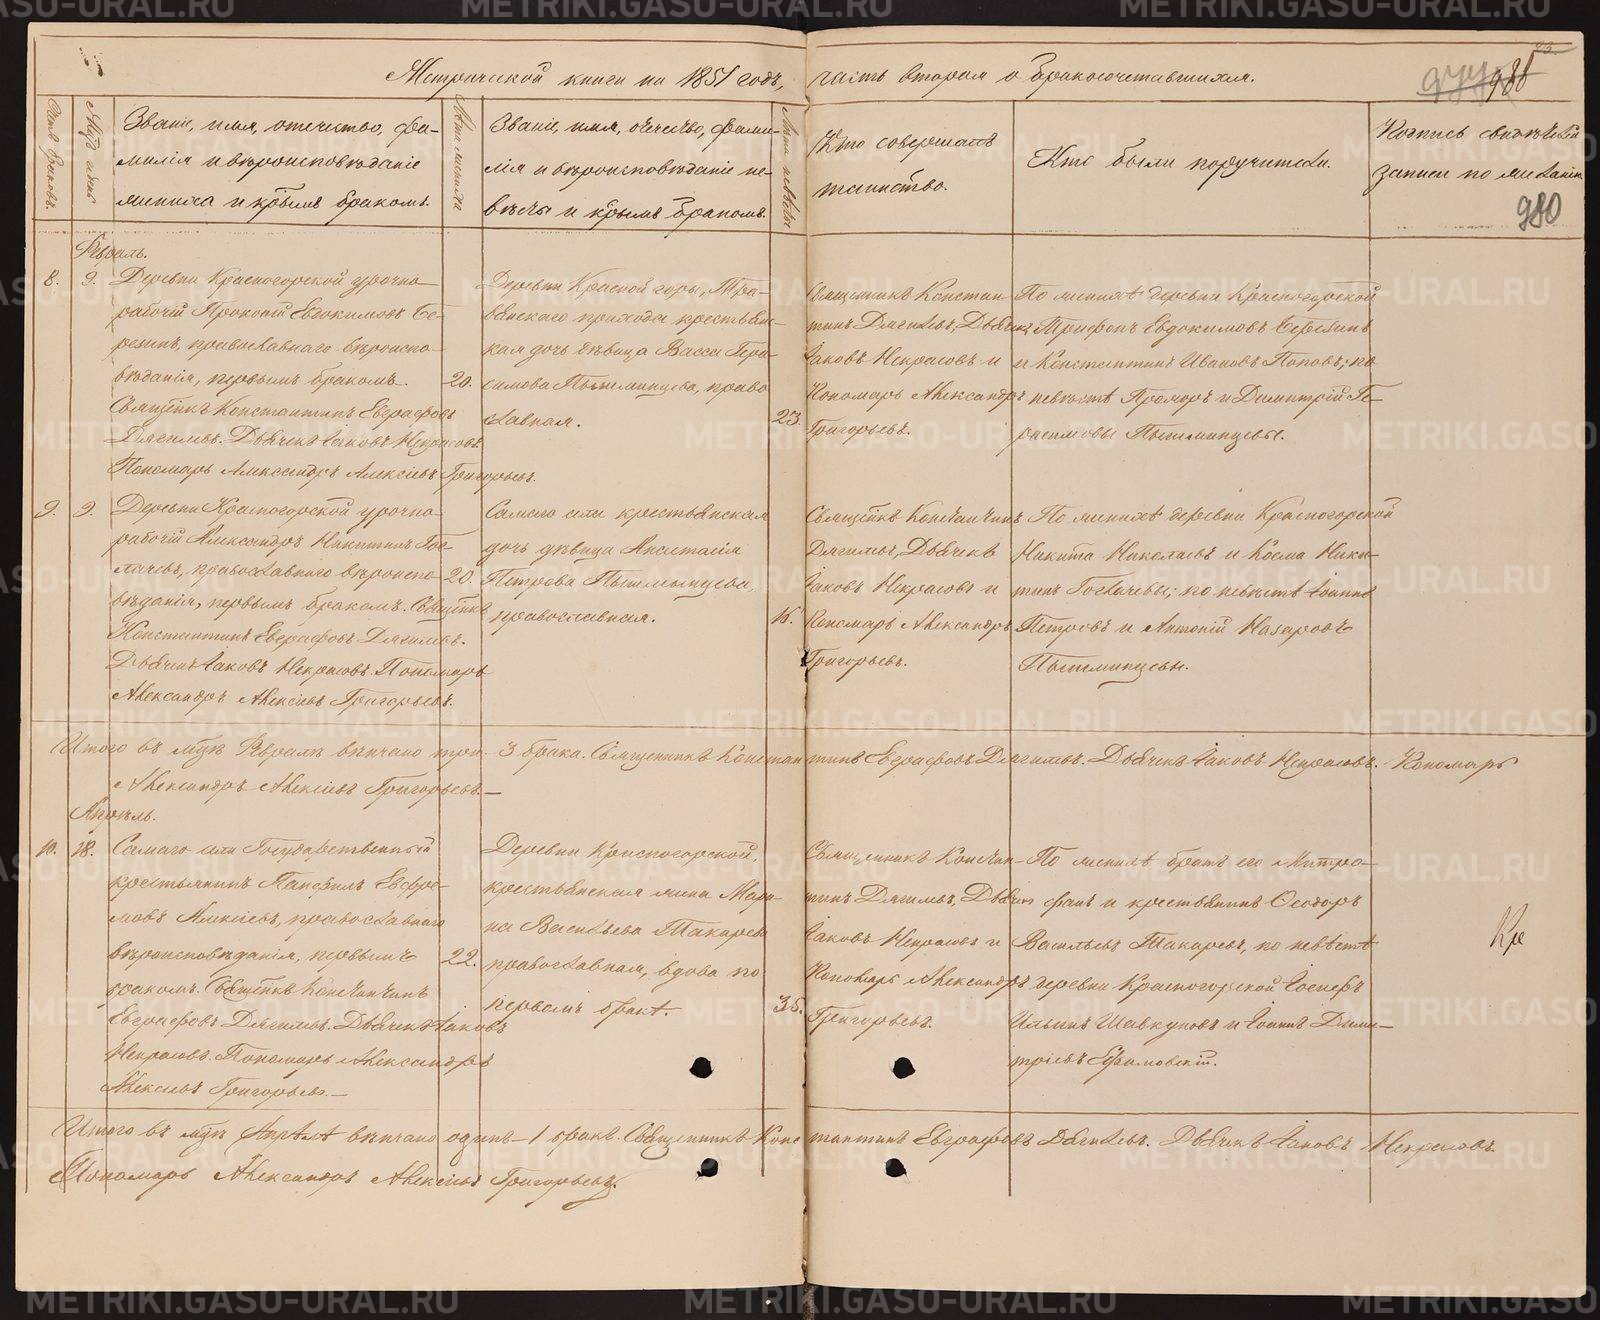 Метрической книги на 1851 годъ, часть вторая о бракосочетавшихся.
988
980
Счетъ браковъ.
Мѣсяцъ и день
Званіе, имя, отечество, фа-
милія и вѣроисповѣданіе
жениха и кѣмъ бракомъ.
Лѣта жениха
Званіе, имя, отечество, фами-
лія и вѣроисповѣданіе не-
вѣсты и кѣмъ бракомъ.
Лѣта невѣсты
Кто совершалъ
таинство.
Кто были поручители.
Подпись свидѣтелей
записи по желанію
Февраль.
8. 9.
Деревни Красногорской урочно-
рабочій Прокопій Евдокимовъ Бе-
резинъ, православнаго вѣроиспо-
вѣданія, первымъ бракомъ.
Священникъ Константинъ Евграфовъ
Дягилевъ. Дьячекъ Іаковъ Некрасовъ
Пономарь Александръ Алексѣевъ Григорьевъ.
20.
Деревни Красной горы, Тра-
вянскаго прихода крестьян-
ская дочь дѣвица Васса Гера-
симова Пышминцева, право
славная.
23.
Священникъ Констан-
тинъ Дягилевъ, Дьячекъ
Іаковъ Некрасовъ и
Пономарь Александръ
Григорьевъ.
По женихѣ деревни Красногорской
Трифонъ Евдокимовъ Березинъ
и Константинъ Ивановъ Поповъ; по
невѣстѣ Прохоръ и Димитрій Ге-
расимовы Пышминцевы.
9. 9.
Деревни Красногорской урочно-
рабочій Александръ Никитинъ Гос-
лачевъ, православнаго вѣроиспо-
вѣданія, первымъ бракомъ. Священникъ
Константинъ Евграфовъ Дягилевъ.
Дьячекъ Іаковъ Некрасовъ. Пономарь
Александръ Алексѣевъ Григорьевъ.
20.
Самаго села крестьянская
дочь дѣвица Анастасія
Петрова Пышминцева,
православная.
16.
Священникъ Константинъ
Дягилевъ, Дьячекъ
Іаковъ Некрасовъ и
Пономарь Александръ
Григорьевъ.
По женихѣ деревни Красногорской
Никита Николаевъ и Косма Ники-
тинъ Гослачевы; по невѣстѣ Іоаннъ
Петровъ и Антоній Назаровъ
Пышминцевы.
Итого въ мѣсяцѣ Февралѣ вѣнчано три — 3 брака. Священникъ Константинъ Евграфовъ Дягилевъ. Дьячекъ Іаковъ Некрасовъ. Пономарь
Александръ Алексѣевъ Григорьевъ.—
Апрѣль.
10. 18.
Самаго села Государственный
крестьянинъ Панфилъ Ефре-
мовъ Алексѣевъ, православнаго
вѣроисповѣданія, первымъ
бракомъ. Священникъ Константинъ
Евграфовъ Дягилевъ. Дьячекъ Іаковъ
Некрасовъ. Пономарь Александръ
Алексѣевъ Григорьевъ.—
22.
Деревни Красногорской,
крестьянская жена Мари-
на Васильева Токарева
православная, вдова по
первомъ бракѣ.
35.
Священникъ Констан-
тинъ Дягилевъ, Дьячекъ
Іаковъ Некрасовъ и
Пономарь Александръ
Григорьевъ.
По женихѣ братъ его Митро-
фанъ и крестьянинъ Ѳеодоръ
Васильевъ Токаревъ, по невѣстѣ
деревни Красногорской Іосифъ
Ильинъ Шавкуновъ и Іоаннъ Дими-
тріевъ Ефимовскій.
Итого въ мѣсяцѣ Апрѣлѣ вѣнчано одинъ — 1 бракъ. Священникъ Константинъ Евграфовъ Дягилевъ. Дьячекъ Іаковъ Некрасовъ.
Пономарь Александръ Алексѣевъ Григорьевъ.
METRIKI.GASO-URAL.RU